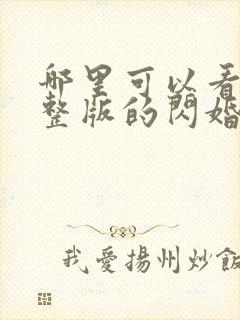 哪里可以看
整版的閃婚
我愛揚州炒飯